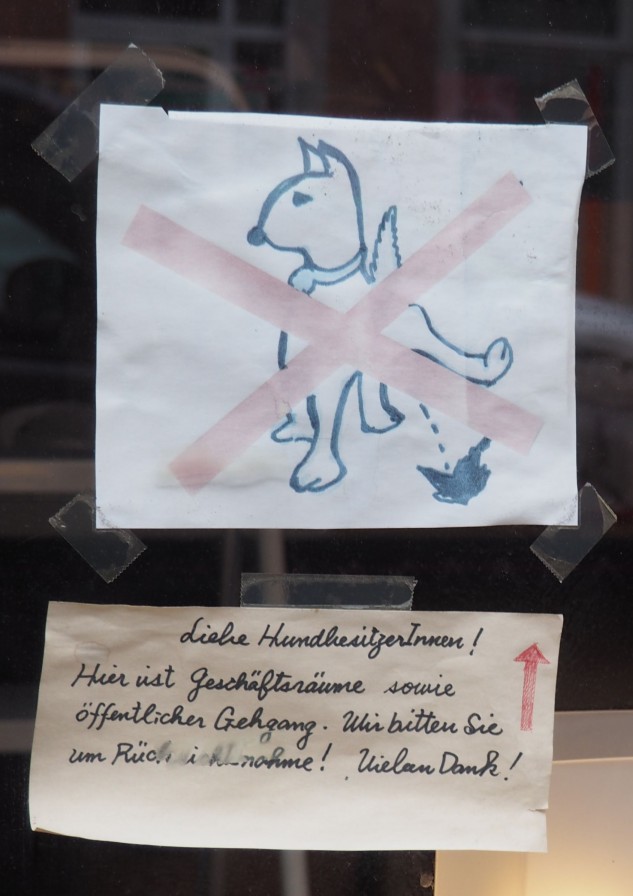 Liebe HundbesitzerInnen!
Hier ist Geschäftsräume sowie
öffentlicher Gehgang. Wir bitten Sie
um Rücksichtnahme! Vielen Dank!